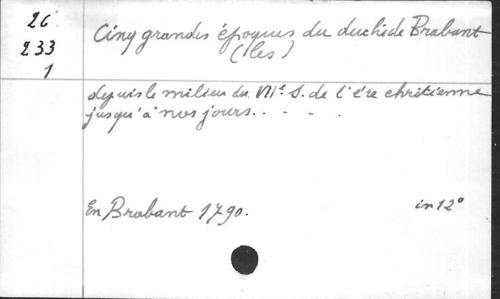 26
233
1
Cinq grandes époques du duché de Brabant
(Les)
depuis le milieu du VIIe S. de l'ére chrétienne
jusqu'à nos jours. . - - .
En Brabant 1790.
in 12°